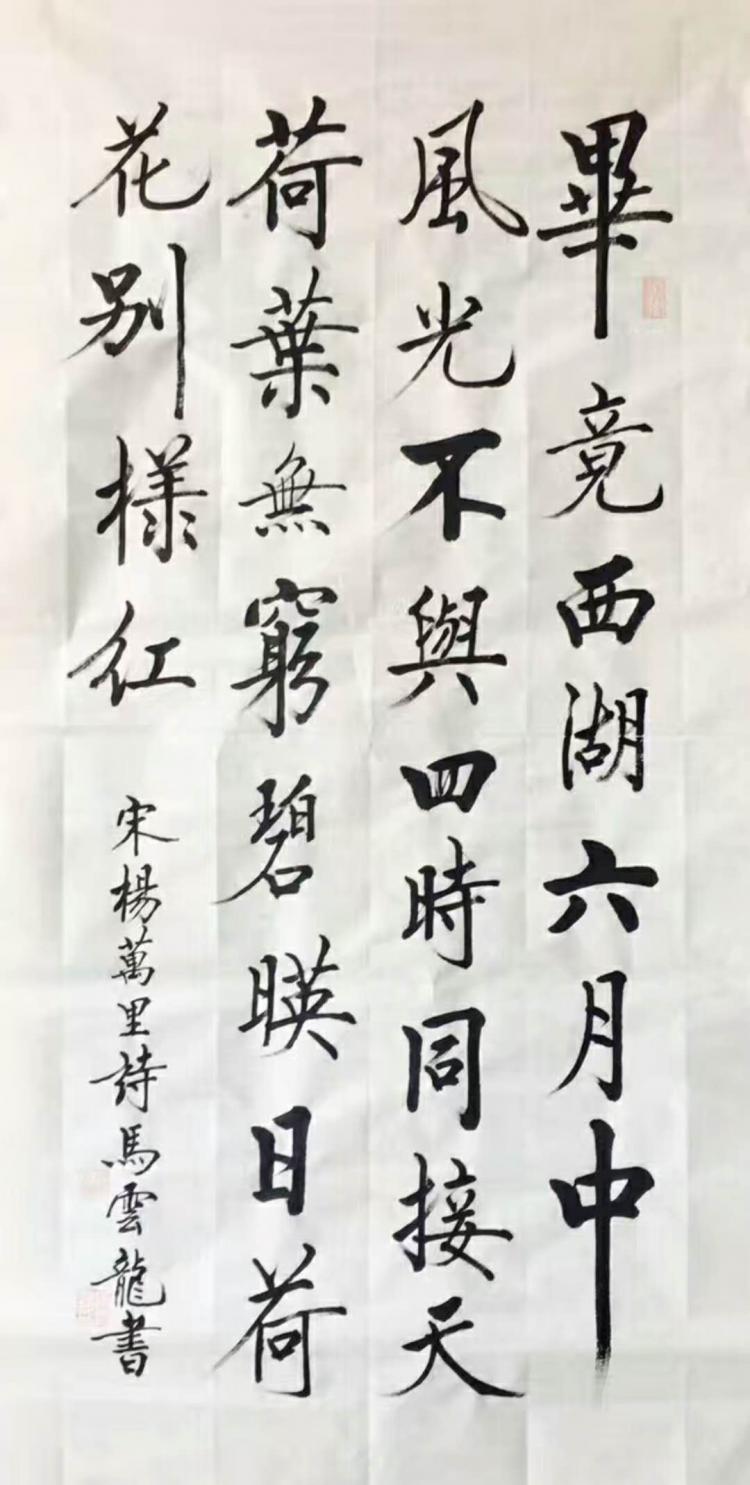 畢竟西湖六月中
風光不與四時同接天
荷葉無窮碧暎日荷
花別樣紅
宋楊萬里詩馬雲龍書